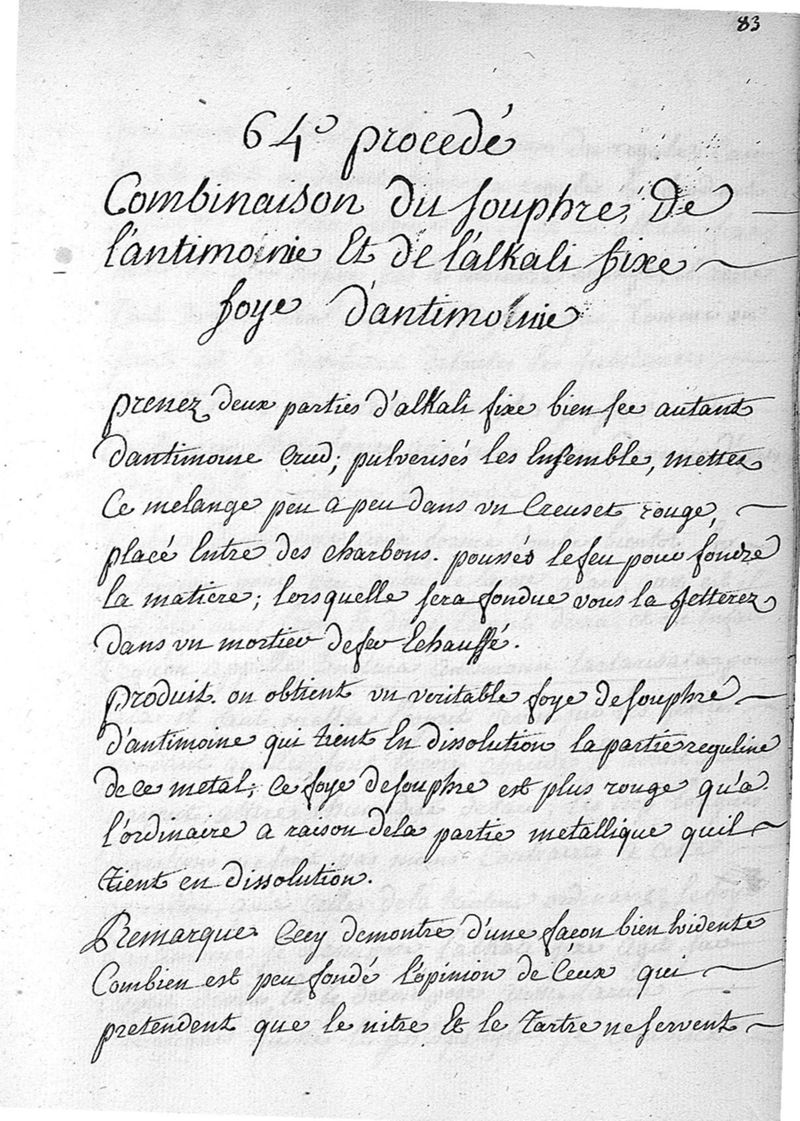 83
64e procedé
Combinaison du souphre, de
l'antimoinie Et de l'alkali fixe
foye d'antimoinie
prenez deux parties d'alkali fixe bien sec autant
d'antimoine crud; pulverisés les Ensemble, mettez
Ce melange peu a peu dans un Creuset rouge,
placé Entre des charbons. poussés le feu pour fondre
la matiere; lorsquelle sera fondue vous la jetterez
dans un mortier de fer Echauffé.
produit. on obtient un veritable foye de souphre
d'antimoine qui tient En dissolution la partie reguline
de ce metal; ce foye de souphre est plus rouge qu'a
l'ordinaire a raison dela partie metallique quil
tient en dissolution.
Remarque. Cecy demontre d'une façon bien Evidente
Combien est peu fondé l'opinion de Ceux qui
pretendent que le nitre Et le Tartre ne servent